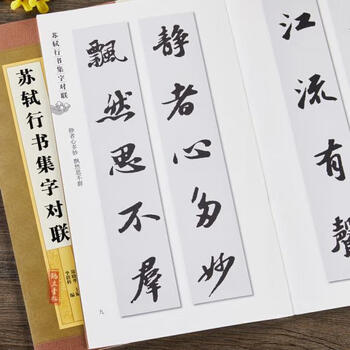 江流有聲
靜者心多妙
飄然思不羣
苏轼行书集字对联
静者心多妙 飘然思不群
九
苏轼行书集字对联